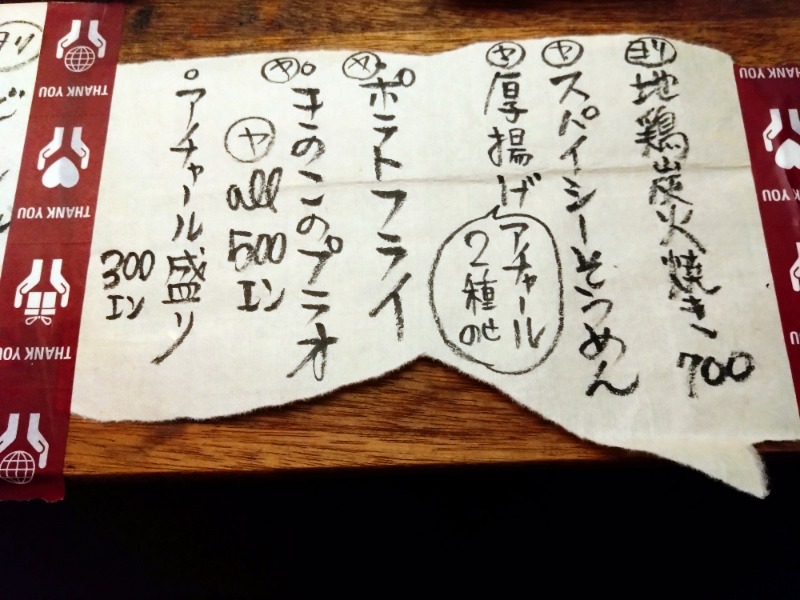 ヨリ 地鶏炭火焼き 700
ヤ スパイシーそうめん
ヤ 厚揚げ アチャール2種のせ
ヤ ポテトフライ
ヤ きのこのプラオ
ヤ all 500エン
アチャール盛り 300エン
THANK YOU
THANK YOU
THANK YOU
THANK YOU
THANK YOU
THANK YOU